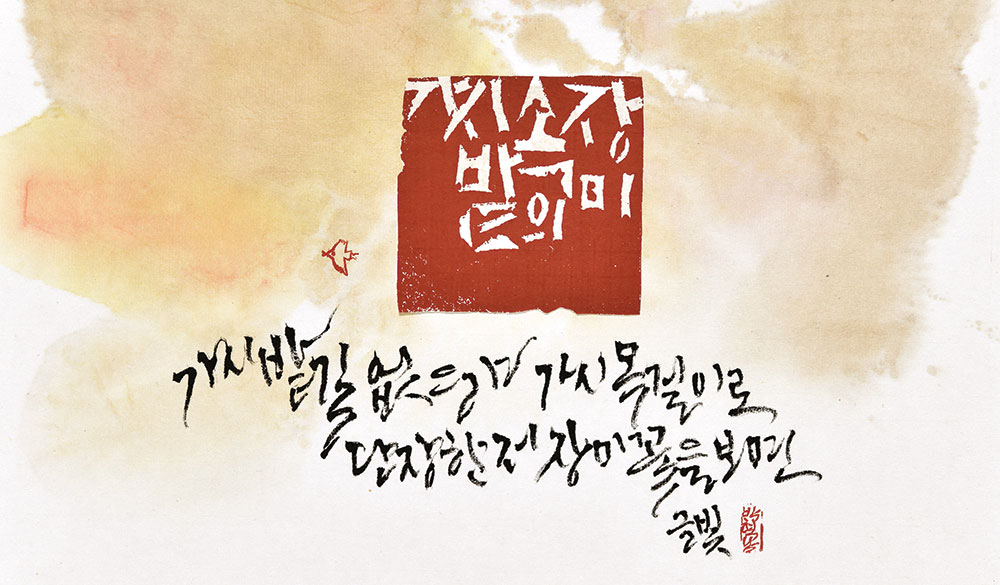 가시밭
속의
장미
가시밭길 없으랴 가시 목걸이로
단장한 저 장미꽃을 보면
글빛